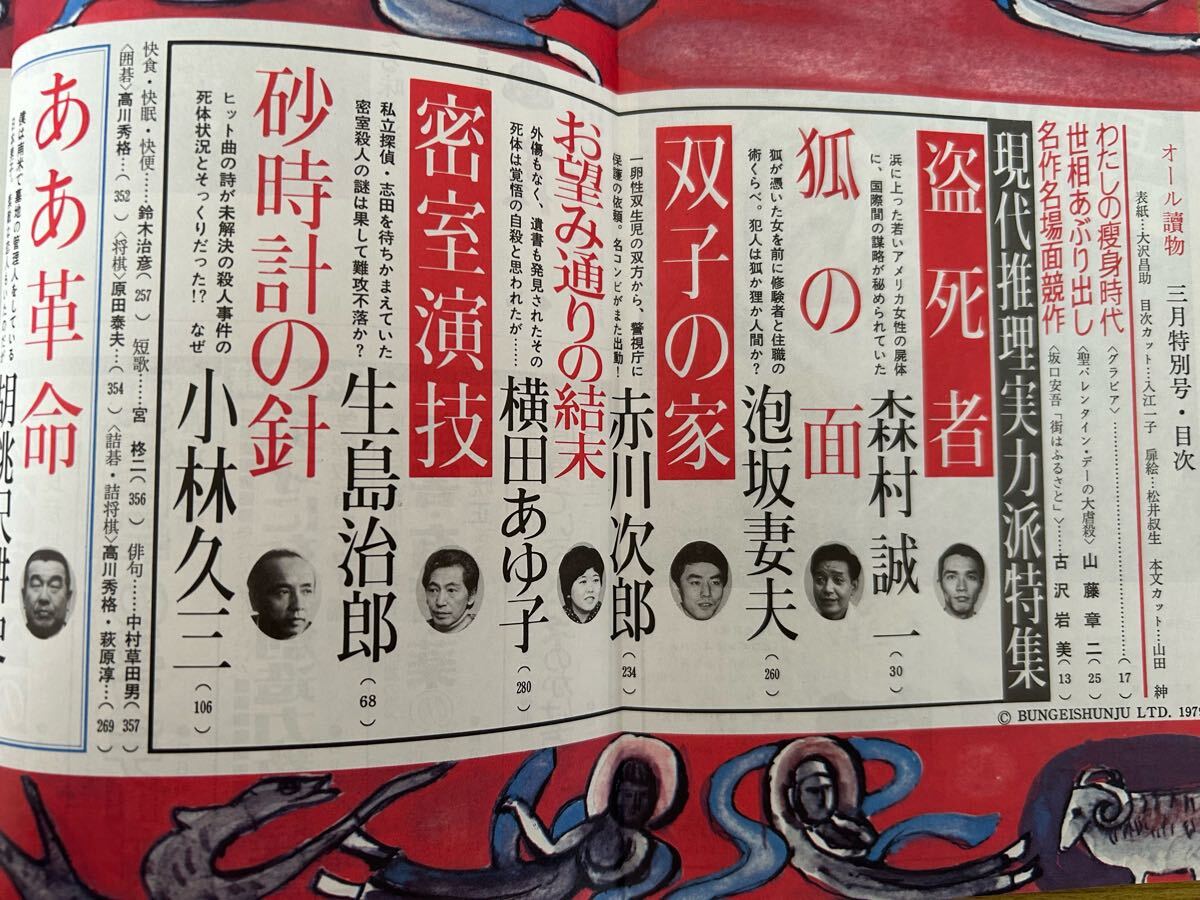 オール讀物　三月特別号・目次
表紙…大沢昌助　目次カット…入江一子　扉絵…松井叔生　本文カット…山田　紳
わたしの瘦身時代〈グラビア〉……(17)
世相あぶり出し〈聖バレンタイン・デーの大虐殺〉山藤章二(25)
名作名場面競作〈坂口安吾「街はふるさと」〉……古沢岩美(13)
現代推理実力派特集
盗死者
浜に上った若いアメリカ女性の屍体
に、国際間の謀略が秘められていた
森村誠一(30)
狐の面
狐が憑いた女を前に修験者と住職の
術くらべ。犯人は狐か狸か人間か?
泡坂妻夫(260)
双子の家
一卵性双生児の双方から、警視庁に
保護の依頼。名コンビがまた出動!
赤川次郎(234)
お望み通りの結末
外傷もなく、遺書も発見されたその
死体は覚悟の自殺と思われたが……
横田あゆ子(280)
密室演技
私立探偵・志田を待ちかまえていた
密室殺人の謎は果して難攻不落か?
生島治郎(68)
砂時計の針
ヒット曲の詩が未解決の殺人事件の
死体状況とそっくりだった!?　なぜ
小林久三(106)
快食・快眠・快便……鈴木治彦(257)　短歌……宮　柊二(356)　俳句……中村草田男(357)
〈囲碁〉高川秀格…(352)〈将棋〉原田泰夫…(354)〈詰碁・詰将棋〉高川秀格・萩原淳…(269)
ああ革命
僕は南米で墓地の管理人をしている
胡桃沢耕史
© BUNGEISHUNJU LTD. 1979